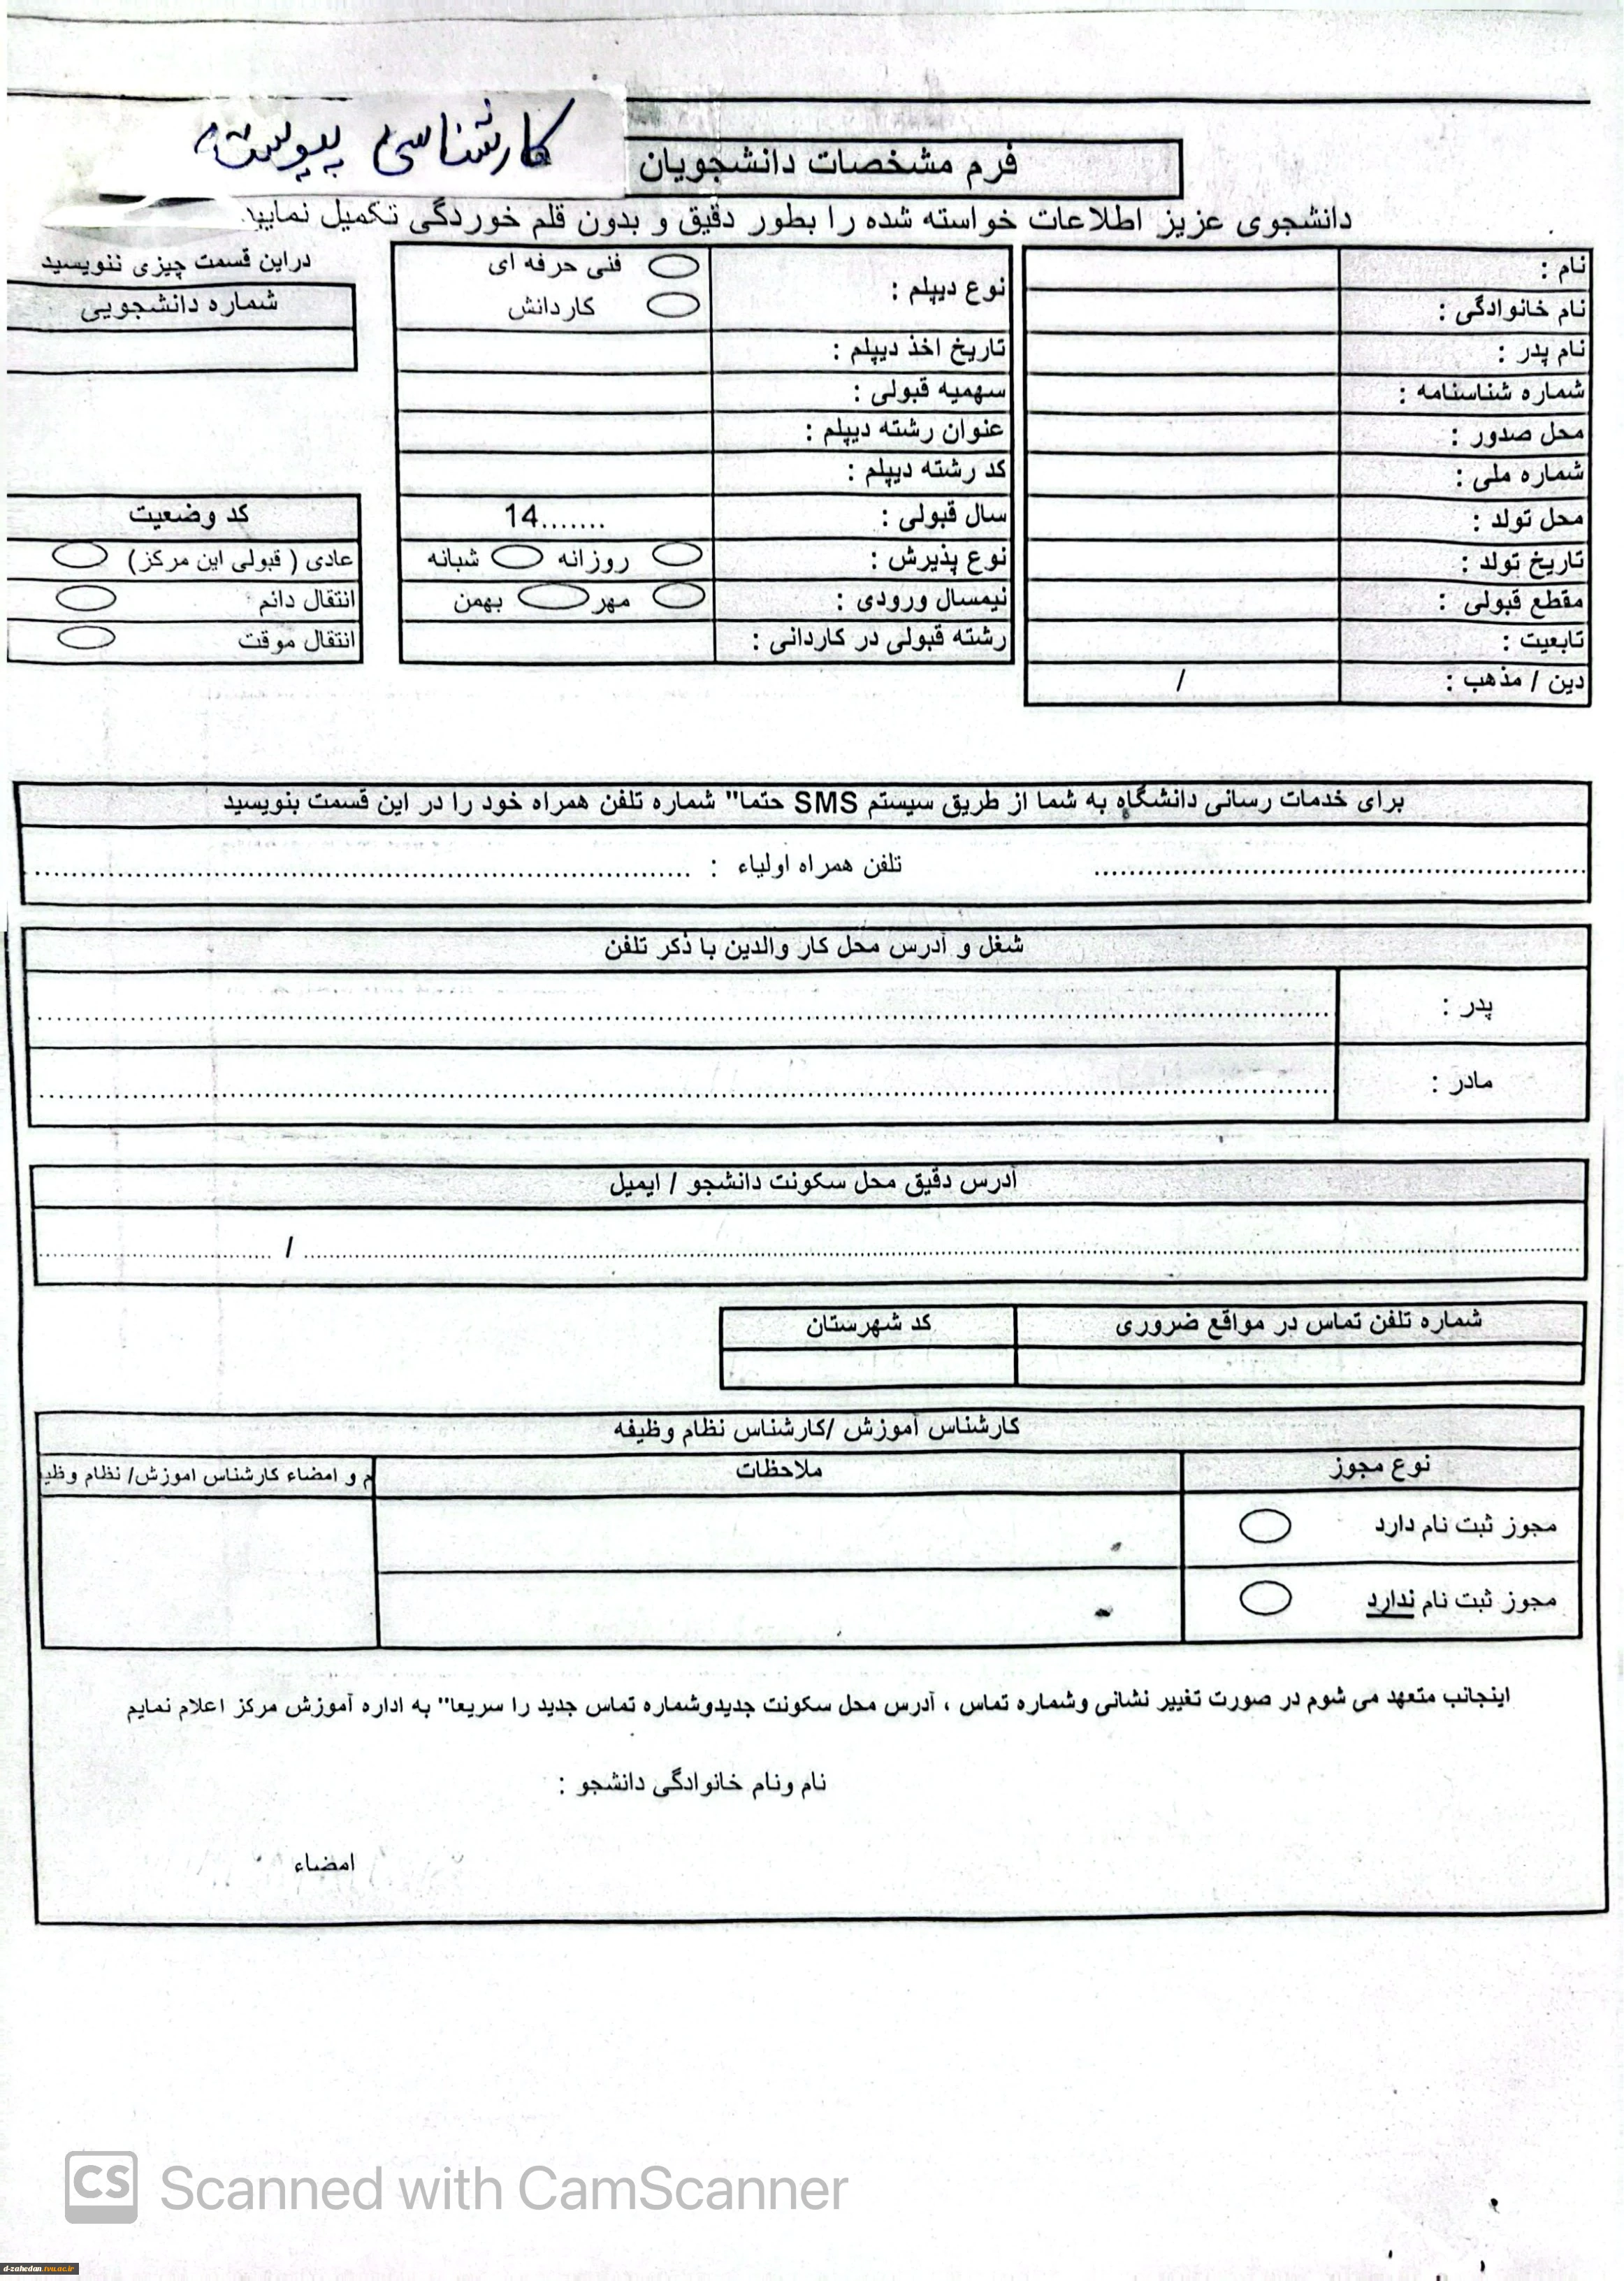 کارشناسی پیوسته
فرم مشخصات دانشجویان
دانشجوی عزیز اطلاعات خواسته شده را بطور دقیق و بدون قلم خوردگی تکمیل نمایید.
نام :
نام خانوادگی :
نام پدر :
شماره شناسنامه :
محل صدور :
شماره ملی :
محل تولد :
تاریخ تولد :
مقطع قبولی :
تابعیت :
دین / مذهب : /
نوع دیپلم :
فنی حرفه ای
کاردانش
تاریخ اخذ دیپلم :
سهمیه قبولی :
عنوان رشته دیپلم :
کد رشته دیپلم :
سال قبولی : 14.......
نوع پذیرش : روزانه شبانه
نیمسال ورودی : مهر بهمن
رشته قبولی در کاردانی :
دراین قسمت چیزی ننویسید
شماره دانشجویی
کد وضعیت
عادی ( قبولی این مرکز)
انتقال دائم
انتقال موقت
برای خدمات رسانی دانشگاه به شما از طریق سیستم SMS حتما" شماره تلفن همراه خود را در این قسمت بنویسید
تلفن همراه اولیاء :
شغل و آدرس محل کار والدین با ذکر تلفن
پدر :
مادر :
آدرس دقیق محل سکونت دانشجو / ایمیل
/
شماره تلفن تماس در مواقع ضروری کد شهرستان
کارشناس آموزش /کارشناس نظام وظیفه
نوع مجوز ملاحظات م و امضاء کارشناس اموزش/ نظام وظی
مجوز ثبت نام دارد
مجوز ثبت نام ندارد
اینجانب متعهد می شوم در صورت تغییر نشانی وشماره تماس ، آدرس محل سکونت جدیدوشماره تماس جدید را سریعا" به اداره آموزش مرکز اعلام نمایم
نام ونام خانوادگی دانشجو :
امضاء
CS Scanned with CamScanner
d-zahedan.tvu.ac.ir